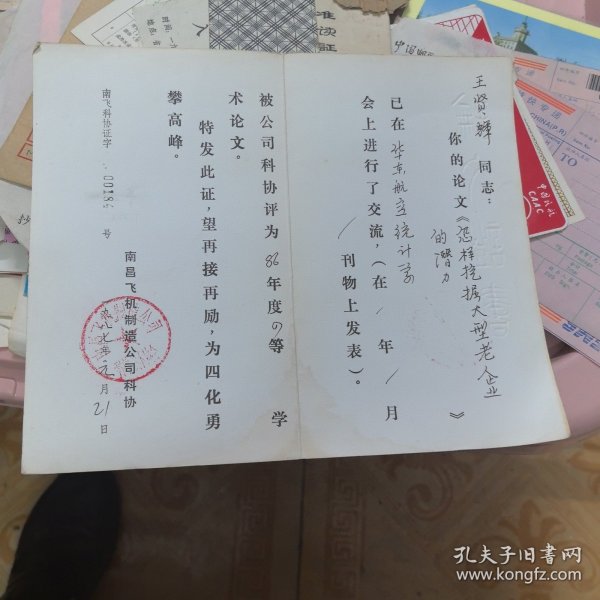 王贤驿 同志：
你的论文《怎样挖掘大型老企业
的潜力》
已在华东航空统计学
会上进行了交流，（在 / 年 / 月
/ 刊物上发表）。
被公司科协评为86年度 等 学
术论文。
特发此证，望再接再励，为四化勇
攀高峰。
南昌飞机制造公司科协
一九八七年 月21日
南飞科协证字 . 00184 号
准
证
中国民航
CAAC
CHINA(P.R)
TO
孔夫子旧书网
www.kongfz.com